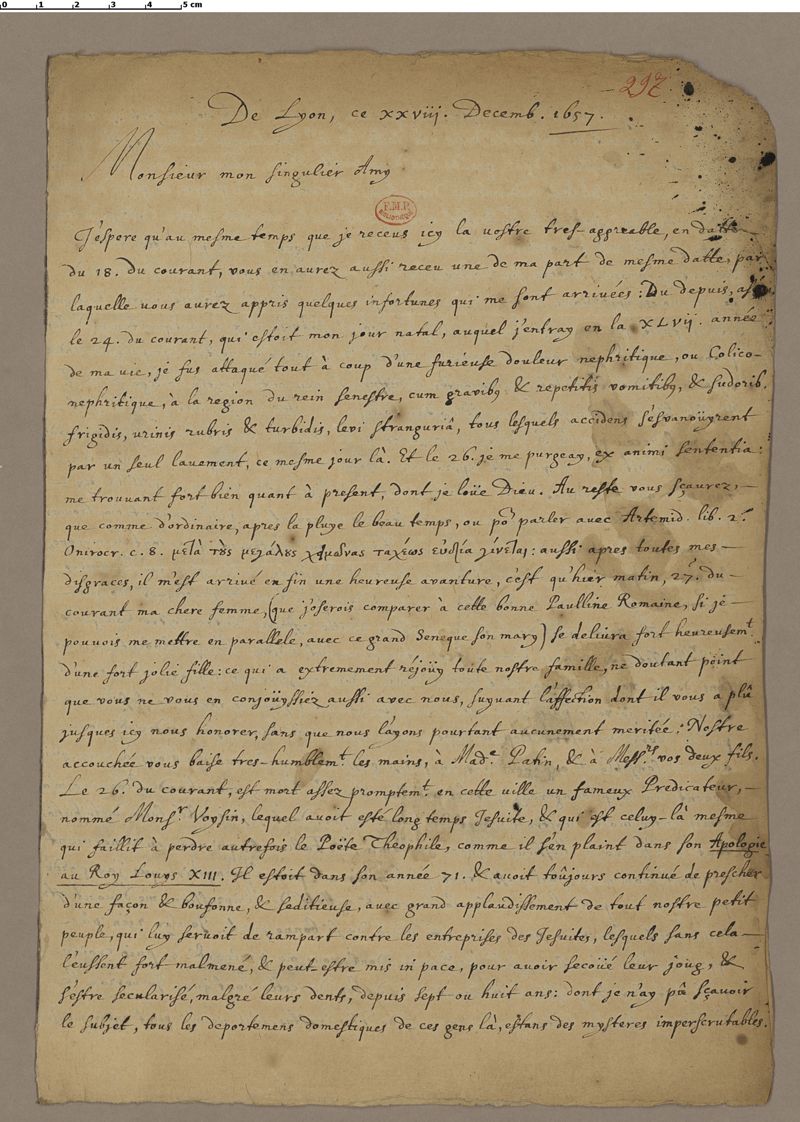 0 1 2 3 4 5 cm
297
De Lyon, ce xxviij. Decemb. 1657.
Monsieur mon singulier Amy
F.M.P.
J'espere qu'au mesme temps que je receus icy la vostre tres-aggreable, en datte
du 18. du courant, vous en aurez aussi receu une de ma part de mesme datte, par
laquelle vous aurez appris quelques infortunes qui me sont arrivées : Du depuis,
le 24. du courant, qui estoit mon jour natal, auquel j'entray en la XLVII. année
de ma vie, je fus attaqué tout à coup d'une furieuse douleur nephritique, ou Colico-
nephritique, à la region du rein senestre, cum gravibȝ & repetitis vomitibȝ, & sudorib.
frigidis, urinis rubris & turbidis, levi stranguriâ, tous lesquels accidens s'esvanoüyrent
par un seul lavement, ce mesme jour là. Et le 26. je me purgeay, ex animi sententia :
me trouvant fort bien quant à present, dont je loüe Dieu. Au reste vous sçaurez, —
que comme d'ordinaire, apres la pluye le beau temps, ou po.r parler avec Artemid. lib. 2.
Onirocr. c. 8. μετὰ τοὺς μεγάλους χειμῶνας ταχέως εὐδία γίνεται : aussi apres toutes mes —
disgraces, il m'est arrivé en fin une heureuse avanture, c'est qu'hier matin, 27.e du —
courant ma chere femme, (que j'oserois comparer à cette bonne Paulline Romaine, si je —
pouvois me mettre en parallele, avec ce grand Seneque son mary) se delivra fort heureusem.t
d'une fort jolie fille : ce qui a extremement réjoüy toute nostre famille, ne doutant point
que vous ne vous en conjoüyssiez aussi avec nous, suyvant l'affection dont il vous a plû
jusques icy nous honorer, sans que nous l'ayons pourtant aucunement meritée. Nostre
accouchée vous baise tres-humblem.t les mains, à Mad.e Patin, & à Mess.rs vos deux fils.
Le 26. du courant, est mort assez promptem.t en cette ville un fameux Predicateur, —
nommé Mons.r Voysin, lequel avoit esté long temps Jesuite, & qui est celuy-là mesme
qui faillit à perdre autrefois le Poëte Théophile, comme il s'en plaint dans son Apologie
au Roy Louys XIII. Il estoit dans son année 71. & avoit toûjours continué de prescher
d'une façon & boufonne, & seditieuse, avec grand applaudissement de tout nostre petit
peuple, qui luy servoit de rampart contre les entreprises des Jesuites, lesquels sans cela —
l'eussent fort malmené, & peut-estre mis in pace, pour avoir secoüé leur joug, &
s'estre secularisé, malgré leurs dents, depuis sept ou huit ans : dont je n'ay pû sçavoir
le subjet, tous les deportemens domestiques de ces gens là, estans des mysteres imperscrutables.